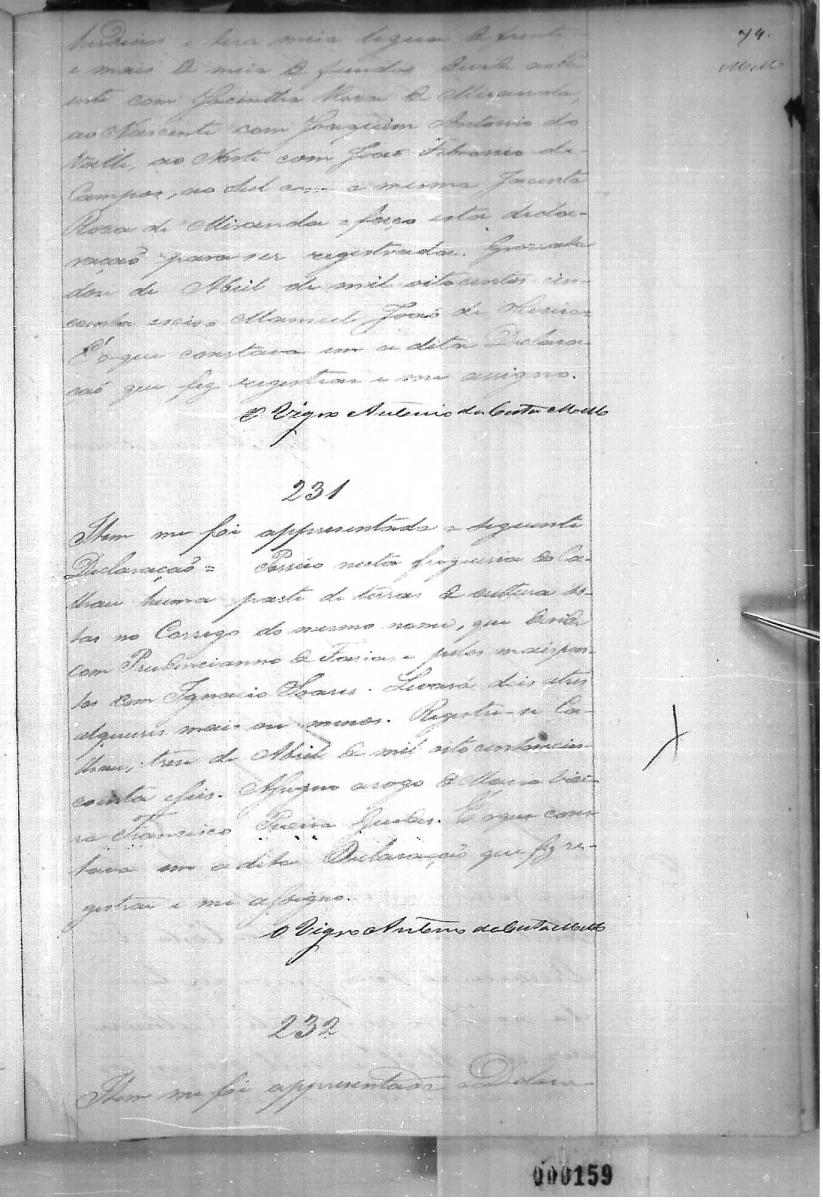 74.
Mello
herdeiros e tera meia legoa de frente
e mais de meia de fundos devide ao Po-
ente com Jacintha Roza de Miranda,
ao Nascente com Joaquim Antonio do
Valle, ao Norte com João de
Campos, ao Sul com a mesma Jacinta
Roza de Miranda e faço esta decla-
ração para ser registrada.
dois de Abril de mil oitocentos cin-
coenta e seis. Manuel João de
É o que constava em a dita Declara-
ção que fez registrar e me assigno.
O Vigro Antonio da Costa Mello
231
Item me foi appresentada a seguinte
Declaração = Possuo nesta freguesia do Ca-
huma parte de terras de cultura si-
tas no Corrego do mesmo nome, que devide
com Prudencianno de Farias e pelos mais pon-
tos com Ignacio Soares. Levará dois a tres
alqueires mais ou menos. Registre-se Ca-
tres de Abril de mil oito centos e cin-
coenta e seis. Assigno a rogo de Maria Viei-
ra Francisco Guedes. É o que cons-
tava em a dita Declaração que fez re-
gistrar e me assigno.
O Vigro Antonio da Costa Mello
232
Item me foi appresentada a Declara-
000159